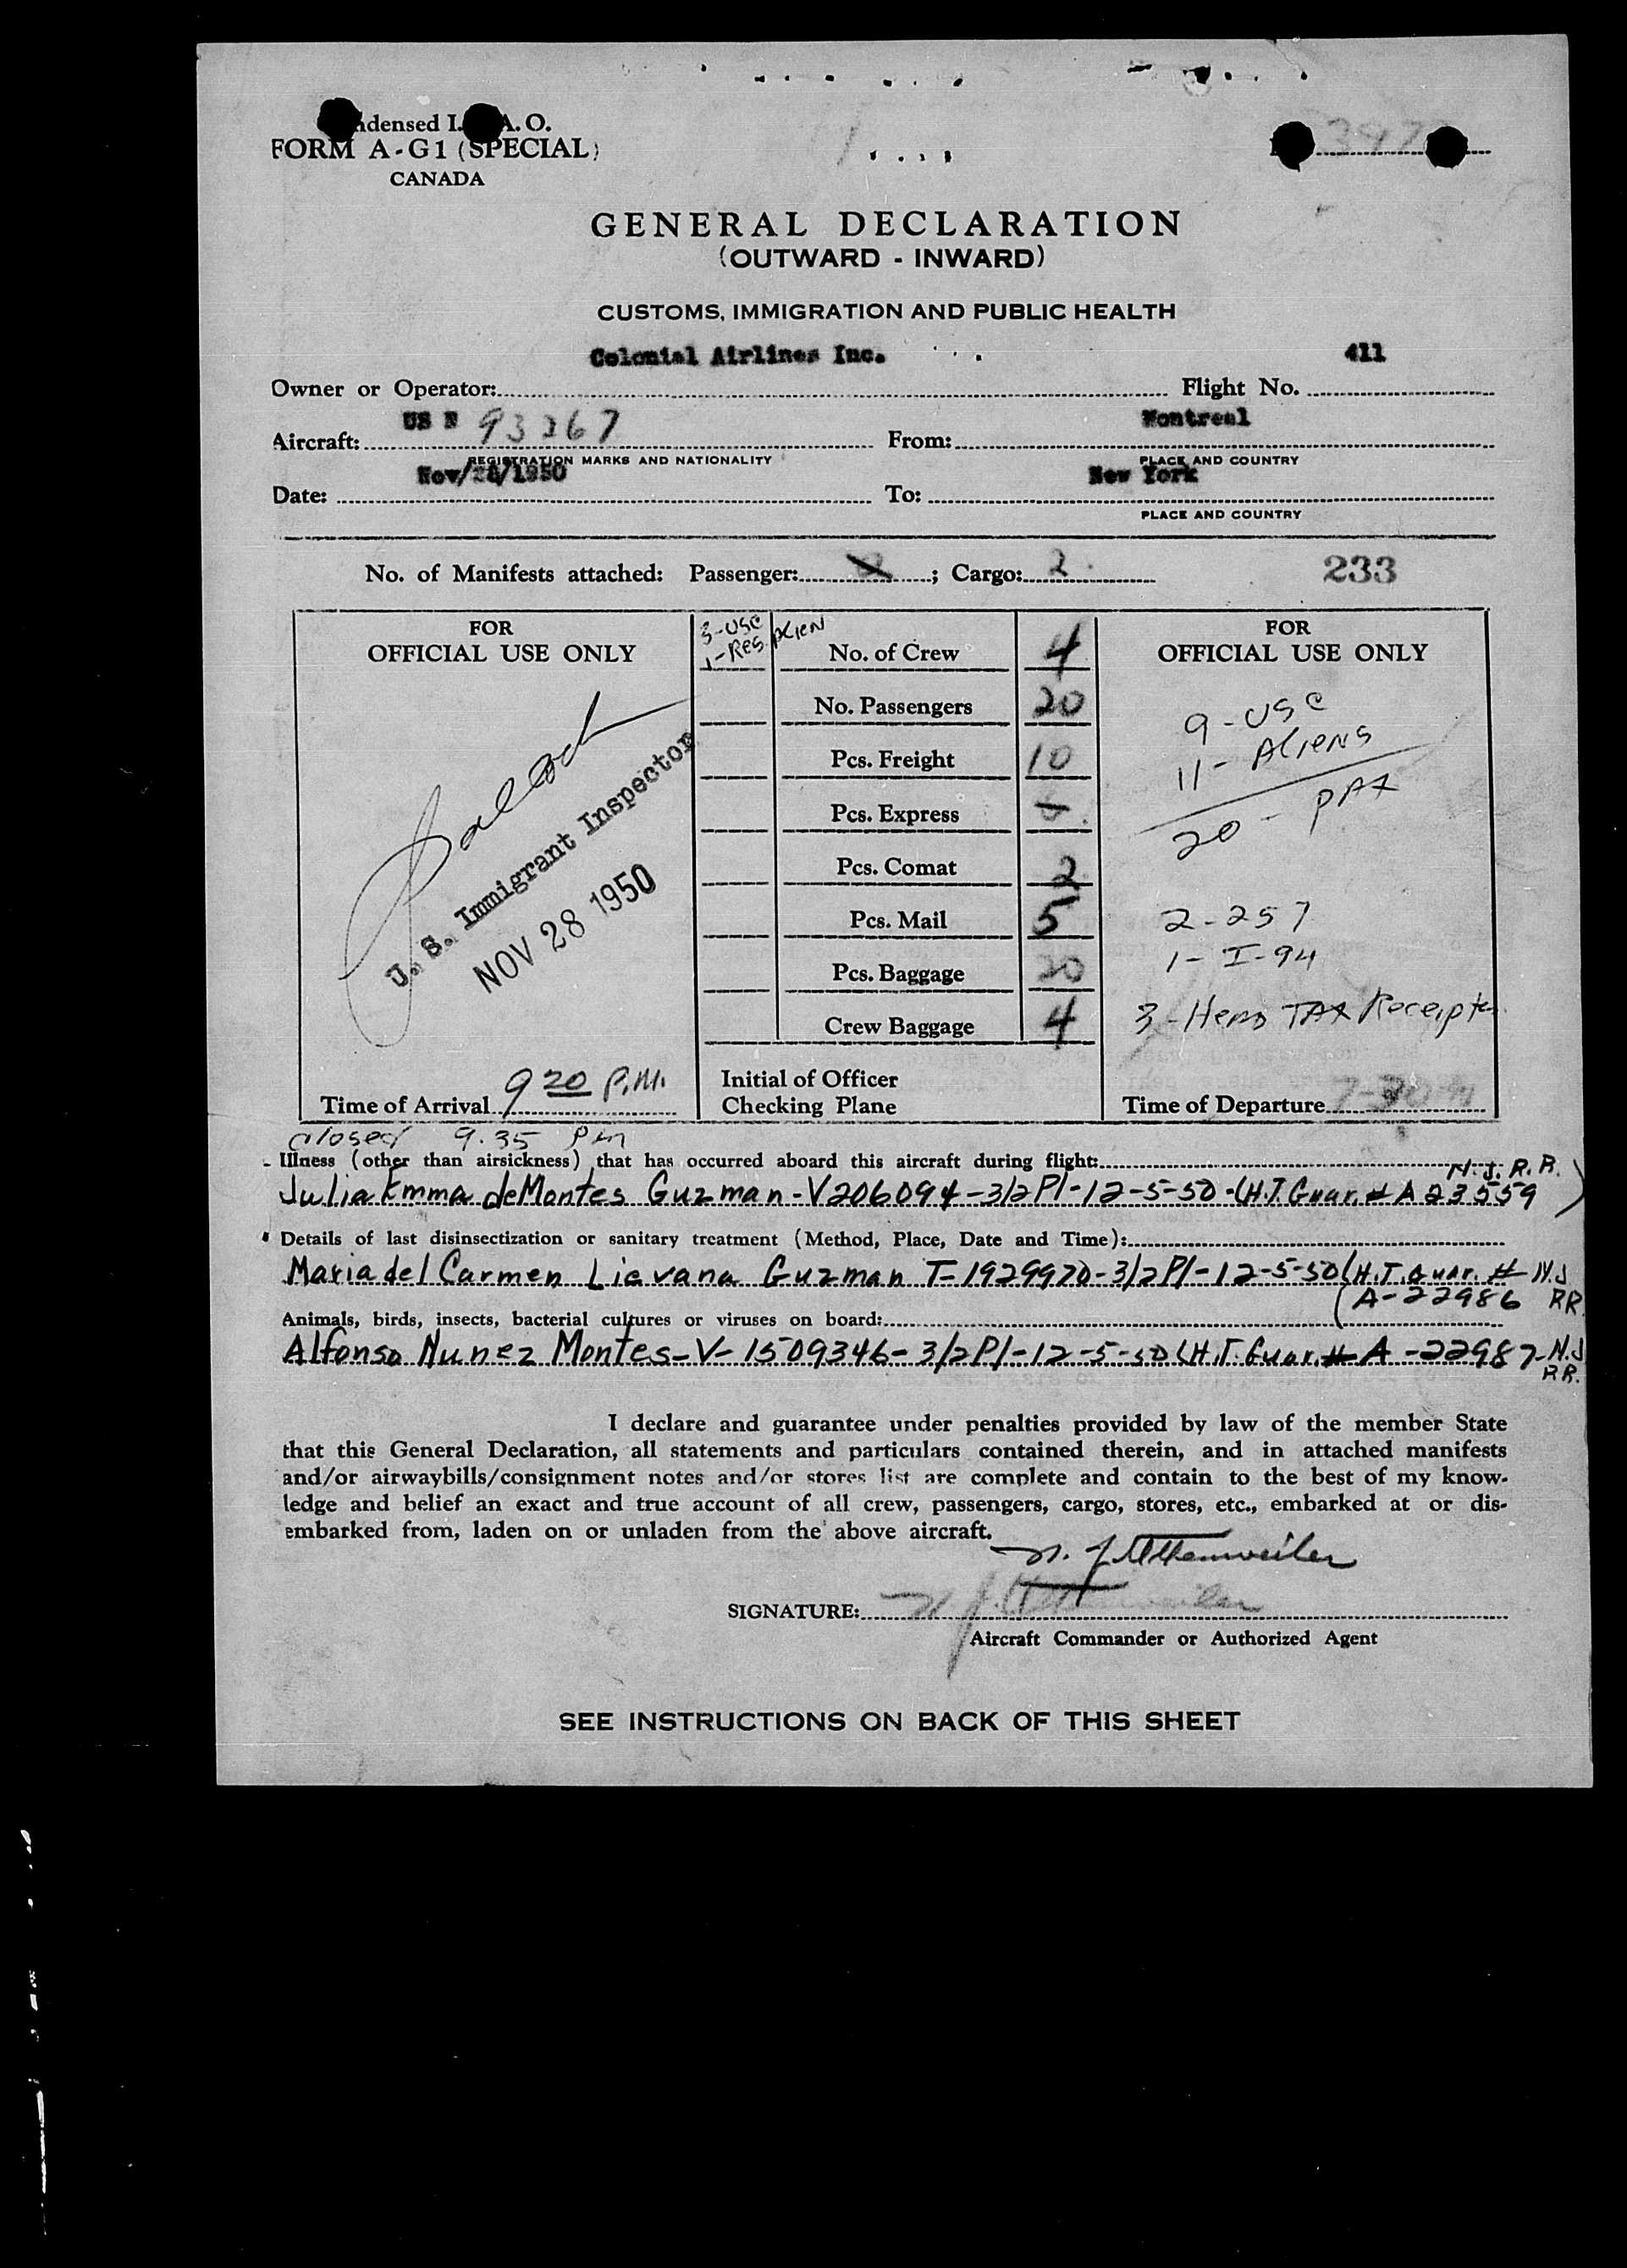 FORM A-G1 (SPECIAL)
CANADA
GENERAL DECLARATION
(OUTWARD - INWARD)
CUSTOMS, IMMIGRATION AND PUBLIC HEALTH
Colonial Airlines Inc. 411
Owner or Operator: Flight No.
US N 93267 Montreal
Aircraft: From:
REGISTRATION MARKS AND NATIONALITY PLACE AND COUNTRY
Nov/28/1950 New York
Date: To:
PLACE AND COUNTRY
No. of Manifests attached: Passenger: ; Cargo: 2 233
FOR
OFFICIAL USE ONLY
U. S. Immigrant Inspector
NOV 28 1950
Time of Arrival 9 20 P.M.
3-USC
1-Res. Alien
No. of Crew 4
No. Passengers 20
Pcs. Freight 10
Pcs. Express
Pcs. Comat 2
Pcs. Mail 5
Pcs. Baggage 20
Crew Baggage 4
Initial of Officer
Checking Plane
FOR
OFFICIAL USE ONLY
9-USC
11-Aliens
20-PAX
2-257
1-I-94
3-Head TAX Receipts
Time of Departure
closed 9.35 pm
Illness (other than airsickness) that has occurred aboard this aircraft during flight: N.J.R.R.
Julia Emma deMontes Guzman-V206094-3/2P1-12-5-50-(H.T.Guar.# A23559)
Details of last disinsectization or sanitary treatment (Method, Place, Date and Time):
Maria del Carmen Lievana Guzman T-1929970-3/2P1-12-5-50(H.T.Guar. # N.J
(A-22986 RR
Animals, birds, insects, bacterial cultures or viruses on board:
Alfonso Nunez Montes-V-1509346-3/2P1-12-5-50(H.T.Guar.# A-22987-N.J
RR.
I declare and guarantee under penalties provided by law of the member State
that this General Declaration, all statements and particulars contained therein, and in attached manifests
and/or airwaybills/consignment notes and/or stores list are complete and contain to the best of my know-
ledge and belief an exact and true account of all crew, passengers, cargo, stores, etc., embarked at or dis-
embarked from, laden on or unladen from the above aircraft.
SIGNATURE:
Aircraft Commander or Authorized Agent
SEE INSTRUCTIONS ON BACK OF THIS SHEET